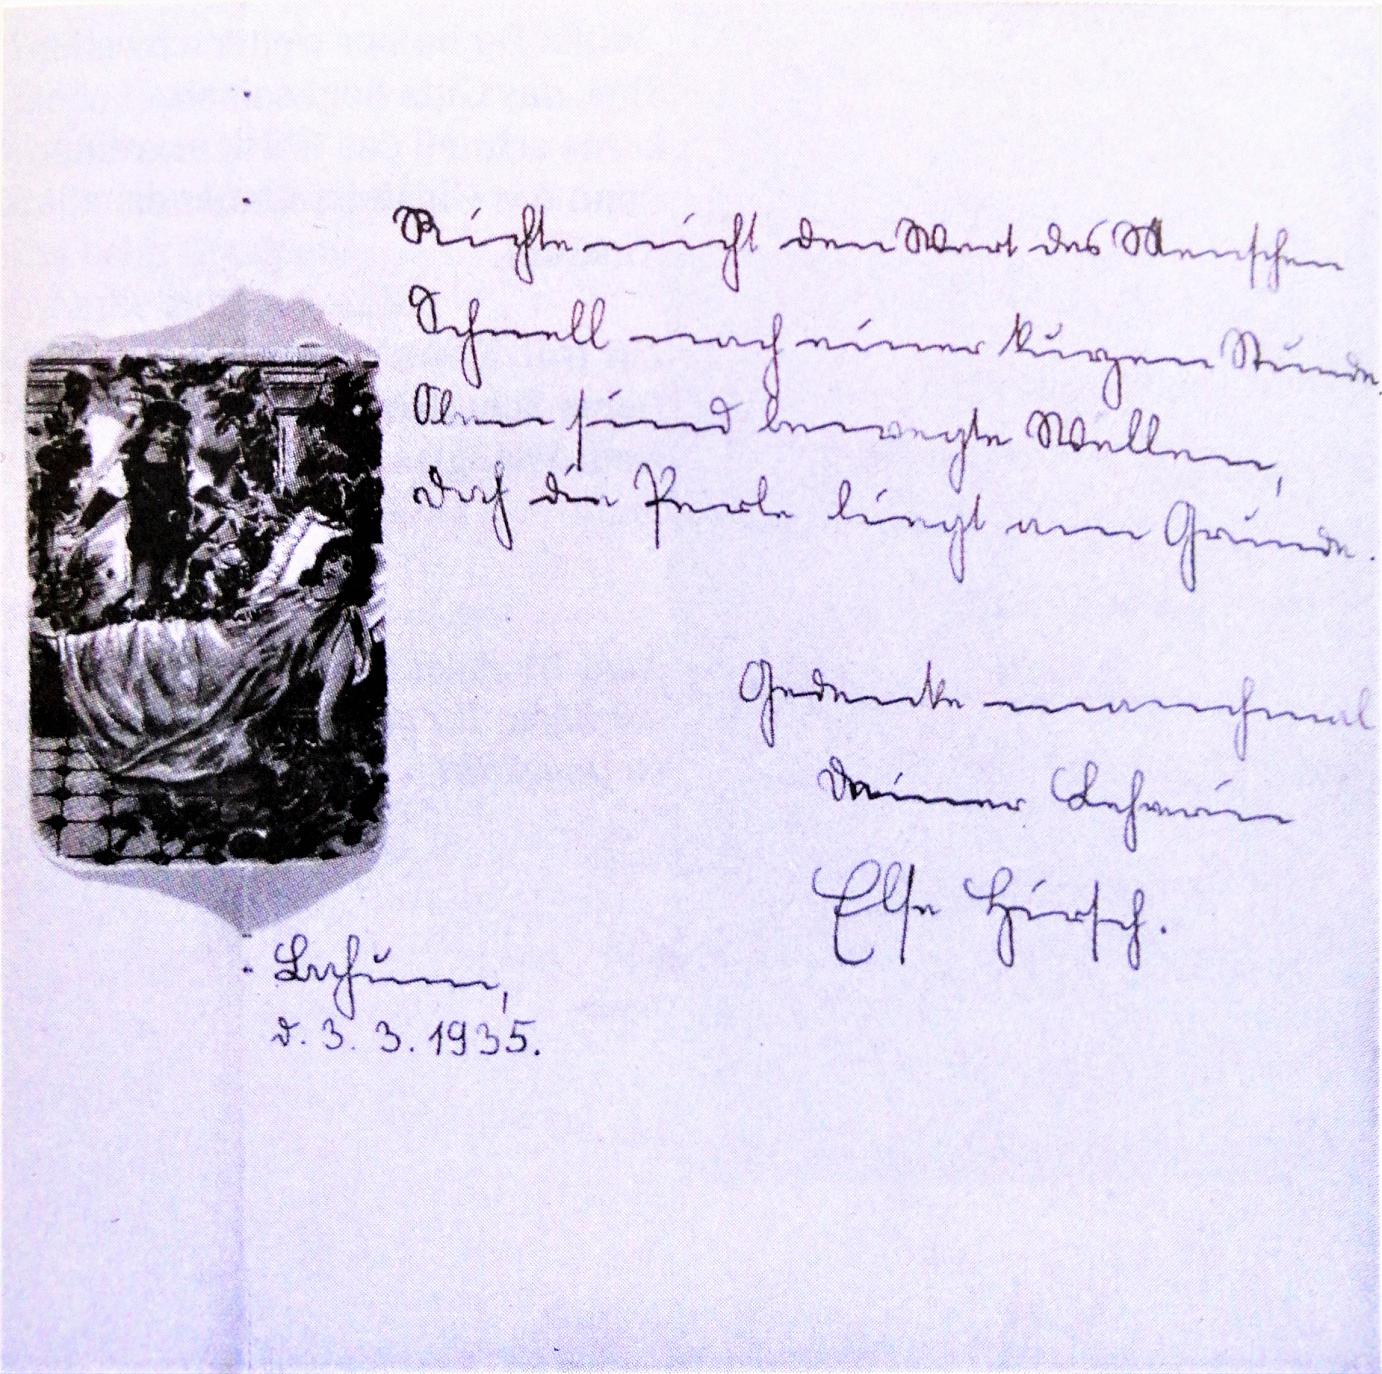 Richte nicht den Wert des Menschen
Schnell nach einer kurzen Stunde.
Oben sind bewegte Wellen,
doch die Perle liegt am Grunde.
Gedenke manchmal
Deiner Lehrerin
Else Hirsch.
Bochum,
d. 3. 3. 1935.